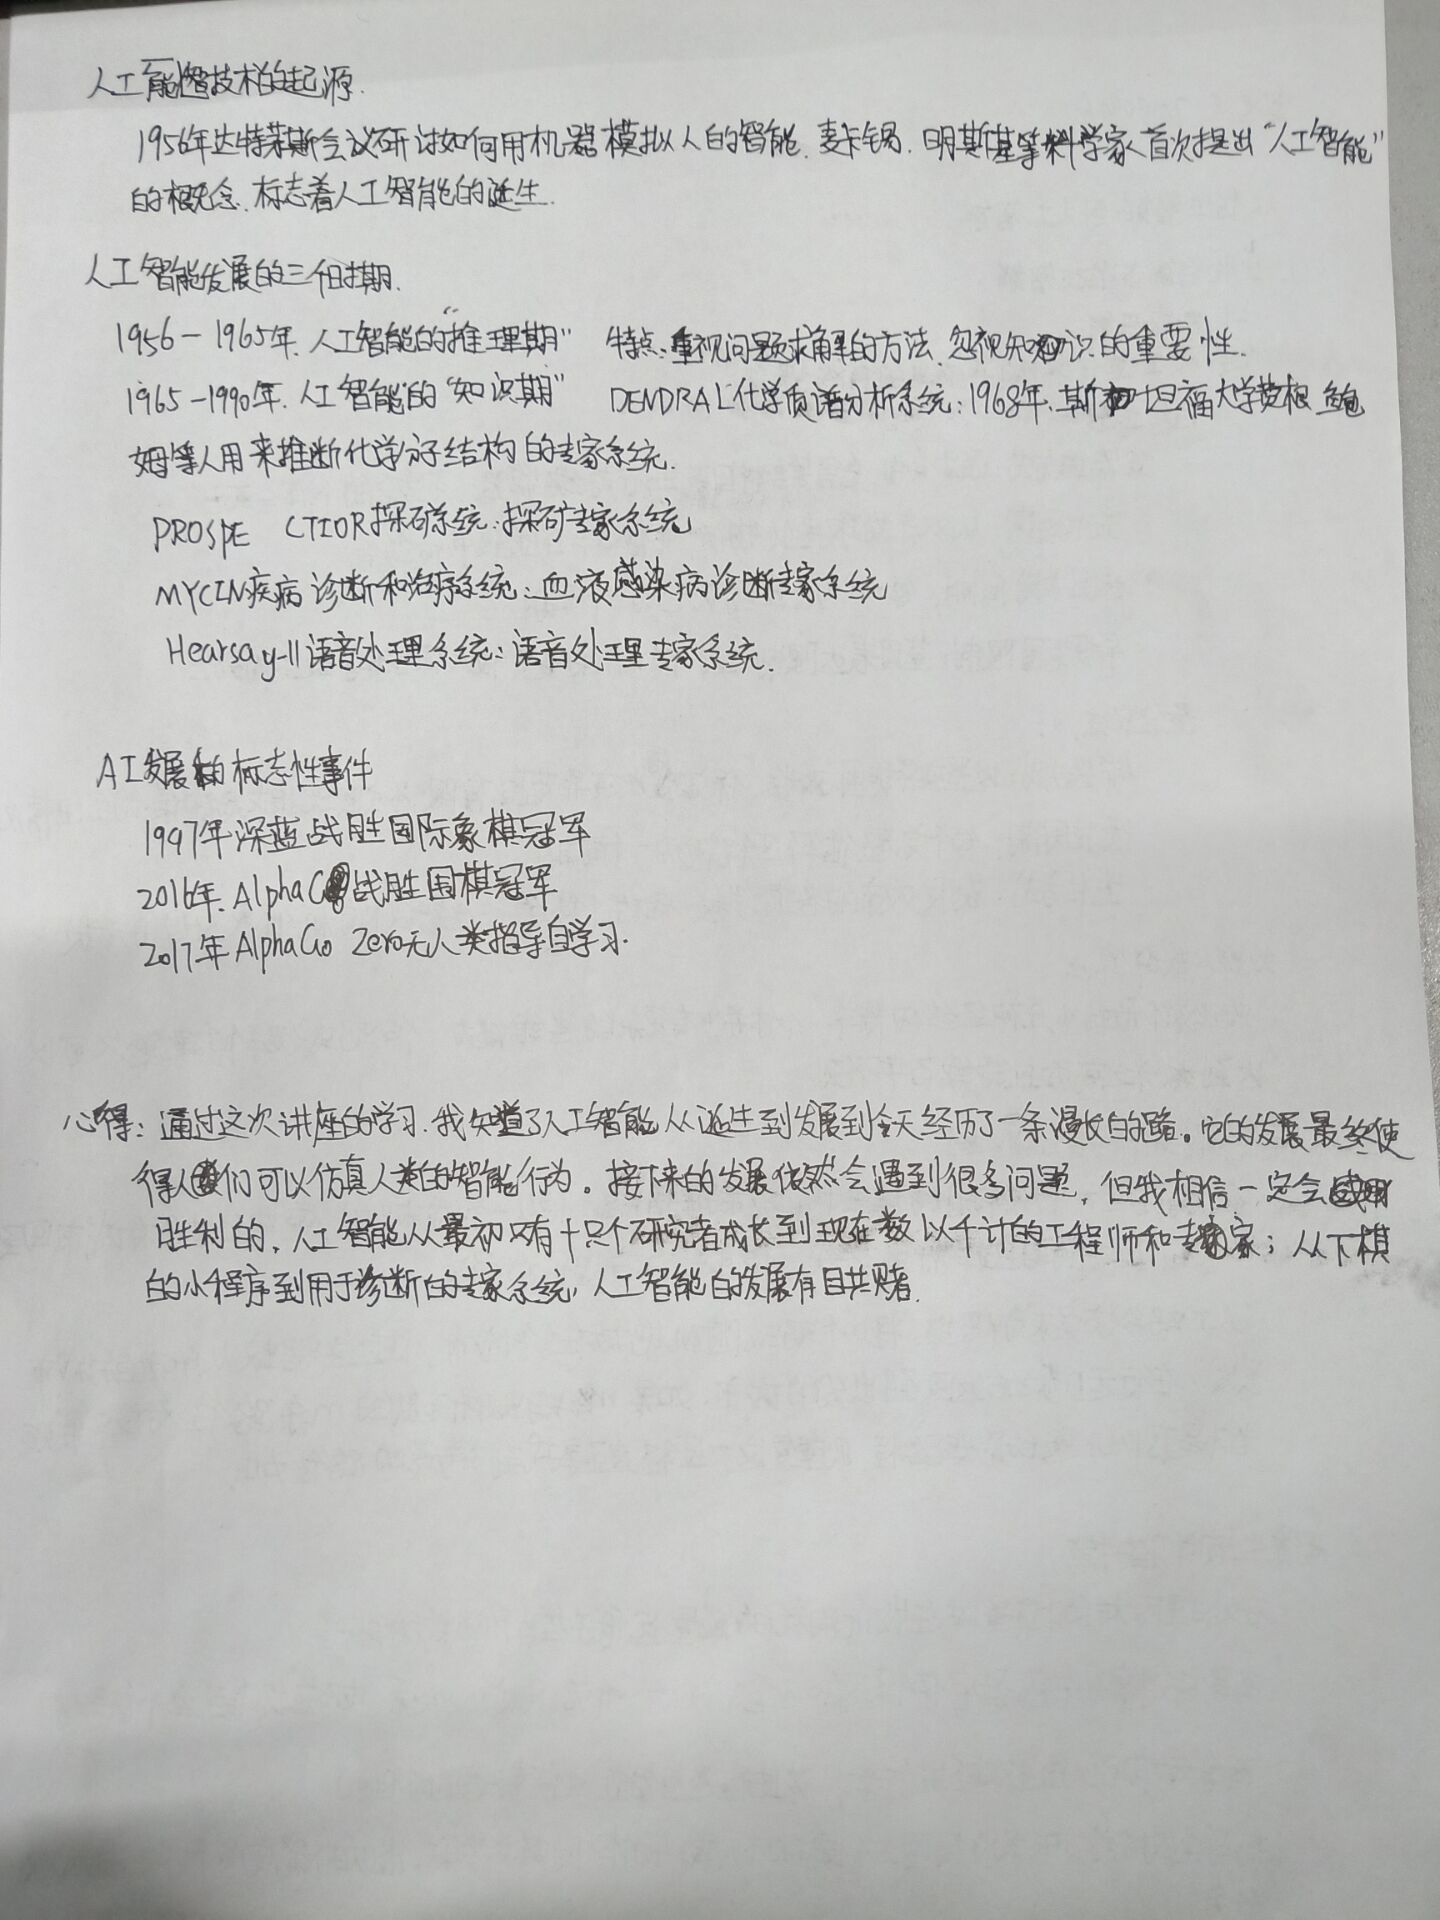 人工智能技术的起源.
1956年达特莱斯会议研讨如何用机器模拟人的智能.麦卡锡.明斯基等科学家首次提出“人工智能”
的概念.标志着人工智能的诞生.
人工智能发展的三个时期.
1956-1965年.人工智能的“推理期” 特点:重视问题求解的方法.忽视知识的重要性.
1965-1990年.人工智能的“知识期” DENDRAL化学质谱分析系统:1968年.斯坦福大学费根鲍
姆等人用来推断化学分子结构的专家系统.
PROSPE CTIOR探矿系统:探矿专家系统
MYCIN疾病诊断和治疗系统:血液感染病诊断专家系统
Hearsay-II语音处理系统:语音处理专家系统.
AI发展的标志性事件
1997年深蓝战胜国际象棋冠军
2016年.AlphaGo战胜围棋冠军
2017年AlphaGo Zero无人类指导自学习.
心得:通过这次讲座的学习.我知道了人工智能从诞生到发展到今天经历了一条漫长的路。它的发展最终使
得人们可以仿真人类的智能行为。接下来的发展依然会遇到很多问题,但我相信一定会
胜利的.人工智能从最初只有十只个研究者成长到现在数以千计的工程师和专家;从下棋
的小程序到用于诊断的专家系统,人工智能的发展有目共赌.